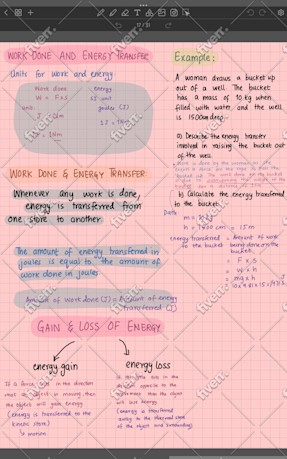 17 / 31
WORK DONE AND ENERGY TRANSFER
Units for work and energy:
Work done
energy
W = F × s
SI unit
unit:
joules (J)
WORK DONE & ENERGY TRANSFER
Whenever any work is done,
energy is transferred from
one store to another.
The amount of energy transferred in
joules is equal to the amount of
work done in joules
Amount of work done (J) = Amount of energy
transferred (J)
GAIN & LOSS OF ENERGY
energy gain
If a force acts in the direction
that an object is moving, then
the object will gain energy
(energy is transferred to the
kinetic store)
↳ motion
energy loss
in the
direction opposite to the
that the object
will lose energy
(energy is transferred
away to the thermal store
of the object and surrounding)
Example:
A woman draws a bucket up
out of a well. The bucket
has a mass of 10 kg when
filled with water, and the well
is 1500cm deep.
a) Describe the energy transfer
involved in raising the bucket out
of the well.
b) Calculate the energy transferred
to the bucket.
Data
h = 1500 cm = 15m
energy transferred = Amount of work
to the bucket being done on the
bucket.
= F × s
= W × h
= mg × h
fiverr.
fiverr.
fiverr.
fiverr.
fiverr.
fiverr.